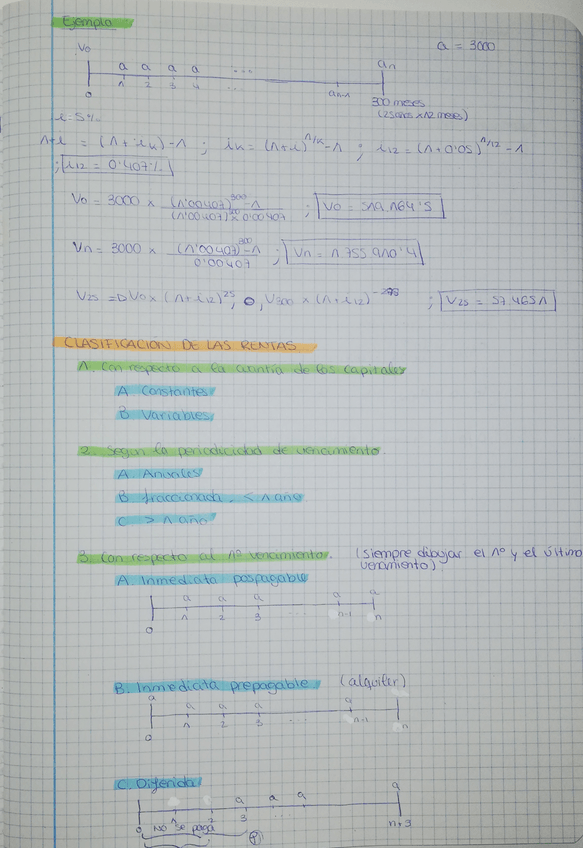 Ejemplo
a = 3000
V0 a a a a ... an
0 1 2 3 4 ... an-1 300 meses
(25 años x 12 meses)
i = 5%
1+i = (1+ik)-1 ; ik = (1+i)^1/k -1 ; i12 = (1+0.05)^1/12 -1
; i12 = 0'407%
V0 = 3000 x (1'00407)^300 -1 / (1'00407)^300 x 0'00407 ;
Vn = 3000 x (1'00407)^300 -1 / 0'00407 ; Vn = 1 755 910'4
V25 => V0 x (1+i12)^25 ; o, V300 x (1+i12) ; V25 =
CLASIFICACIÓN DE LAS RENTAS
1. Con respecto a la cuantía de los capitales
A Constantes
B Variables
2. Según la periodicidad de vencimiento.
A Anuales
B fraccionada. < 1 año
C > 1 año
3. Con respecto al nº vencimiento. (siempre dibujar el 1º y el último
vencimiento)
A. Inmediata pospagable
a a a a a
0 1 2 3 ... n-1 n
B. Inmediata prepagable (alquiler)
a a a a a
0 1 2 3 ... n-1 n
C. Diferida
a a a a
0 1 2 3 n+3
No se paga